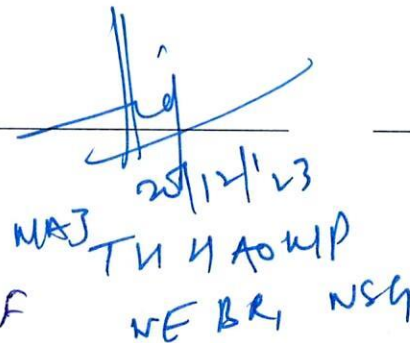 20/12/'23
MAJ
TH HAOKIP
F
NE BR, NSG